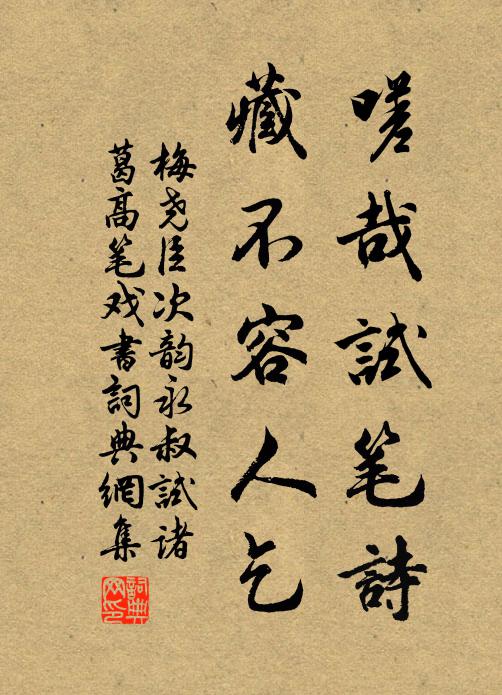 嗟哉試笔詩
藏不容人乞
梅尧臣次韵永叔試诸
葛高笔戏書詞典網集
詞典网印